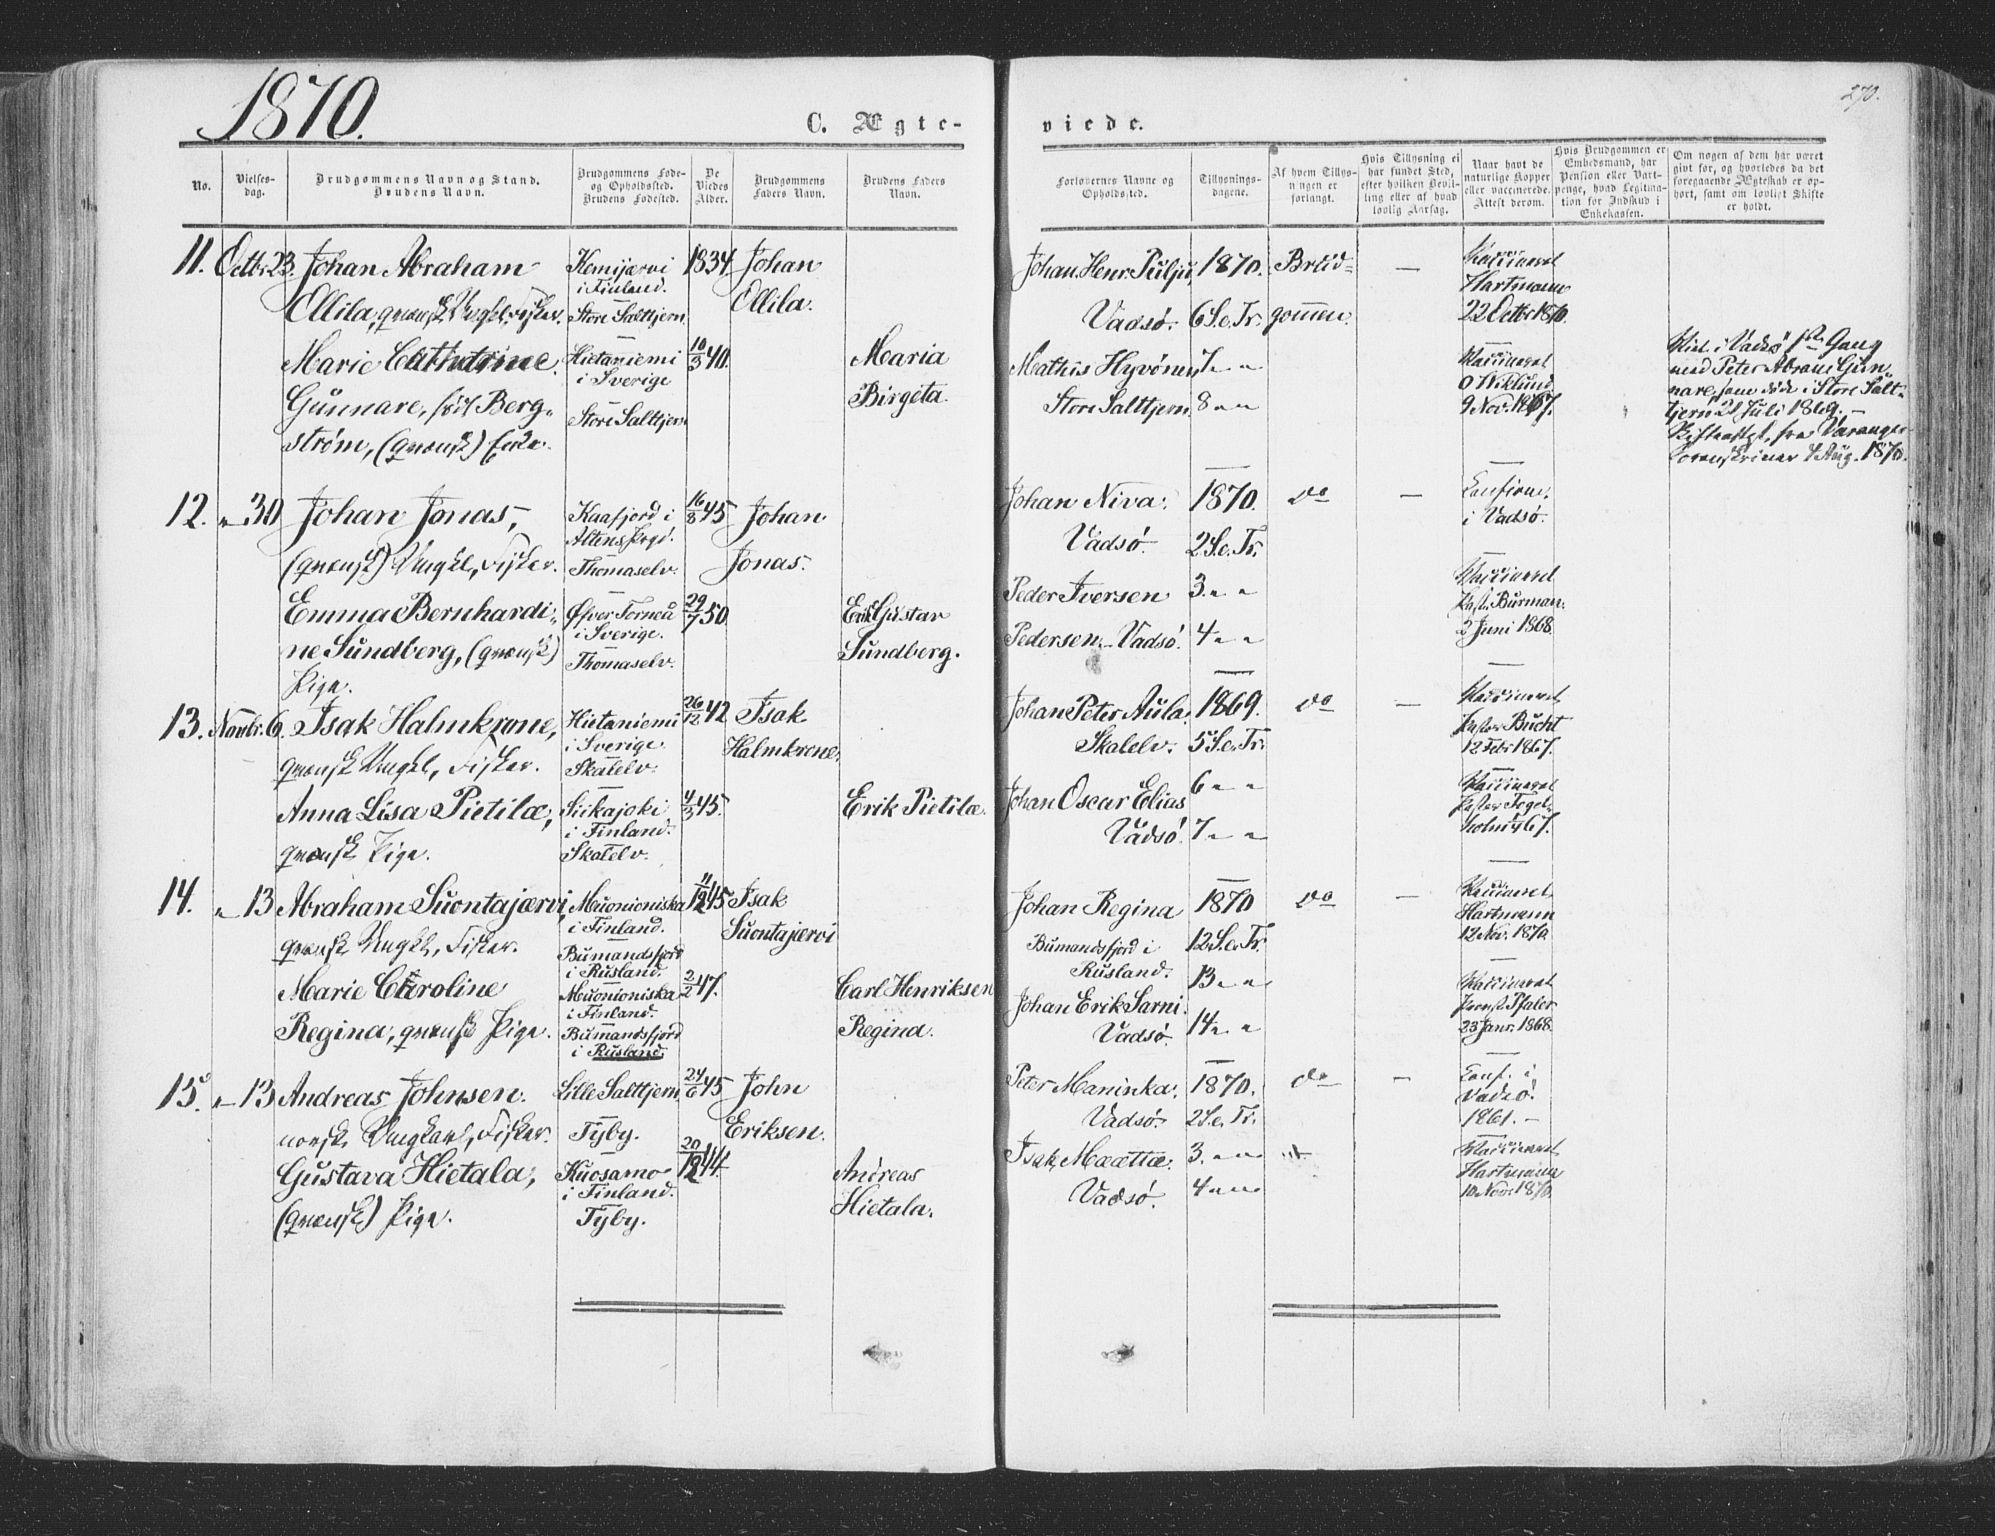 1870.
C. Ægte-
viede.
270.
No.
Vielses-
dag.
Brudgommens Navn og Stand.
Brudens Navn.
Brudgommens Føde-
og Opholdssted.
Brudens Fødested.
De
Viedes
Alder.
Brudgommens
Faders Navn.
Brudens Faders
Navn.
Forlovernes Navne og
Opholdssted.
Tillysnings-
dagene.
Af hvem Tillys-
ningen er
forlangt.
Hvis Tillysning ei
har fundet Sted,
efter hvilken Bevil-
ling eller af hvad
lovlig Aarsag.
Naar havt de
naturlige Kopper
eller vaccinerede.
Attest derom.
Hvis Brudgommen er
Embedsmand, har
Pension eller Vart-
penge, hvad Legitima-
tion for Indskud i
Enkekassen.
Om nogen af dem har været
givt før, og hvorledes da det
foregaaende Ægteskab er op-
hørt, samt om lovligt Skifte
er holdt.
11. Octbr. 23.
Johan Abraham
Ollila, qvænsk Ungkl, Fisker.
Kemijærvi
i Finland.
Store Salttjern
1834
Johan
Ollila.
Marie Cathrine
Gunnare, født Berg-
strøm, (qvænsk) Enke.
Hietaniemi
i Sverige
Store Salttjern
10/3 40.
Maria
Birgeta.
Johan Henr. Pulju,
Vadsø.
Mathis Hyvönen,
Store Salttjern
1870.
6 S. e. Tr.
7 " "
8 " "
Brud-
gommen.
—
Vaccineret
Hartmann
22 Octbr 1870.
Vaccineret
O Wiklund
9 Nov. 1867.
Viet i Vadsø 1ste Gang
med Peter Abram Gun-
nare, som døde i Store Salt-
tjern 21 Juli 1869.—
Skifteattest fra Varanger
Sorenskriver 4 Aug. 1870.
12. " 30
Johan Jonas,
(qvænsk) Ungkl, Fisker.
Kaafjord i
Altens Prgd.
Thomaselv.
16/8 45
Johan
Jonas.
Emma Bernhardi-
ne Sundberg, (qvænsk)
Pige.
Øfver Torneå
i Sverige.
Thomaselv.
29/7 50
Erik Gustav
Sundberg.
Johan Niva.
Vadsø.
Peder Iversen
Pedersen.- Vadsø.
1870.
2 S. e. Tr.
3. " "
4 " "
do
—
Confirm.
i Vadsø.
Vaccineret
Past. Burman.
2 Juni 1868.
13. Novbr. 6.
Isak Halmkrone,
qvænsk Ungkl, Fisker.
Hietaniemi
i Sverige.
Skalelv.
26/12 42
Isak
Halmkrone.
Anna Lisa Pietilæ,
qvænsk Pige.
Siikajoki
i Finland.
Skalelv.
4/3 45.
Erik Pietilæ.
Johan Peter Aula.
Skalelv.
Johan Oscar Elias
Vadsø.
1869.
5 S. e. Tr.
6 " "
7 " "
do
—
Vaccineret
Pastor Bucht
12 Febr 1867.
Vaccineret
Pastor Fogel-
holm 67.
14. " 13
Abraham Suontajærvi,
qvænsk Ungkl, Fisker.
Muonioniska
i Finland.
Bumandsfjord
i Rusland.
4/12 45
Isak
Suontajervi
Marie Caroline
Regina, qvænsk Pige.
Muonioniska
i Finland.
Bumandsfjord
i Rusland.
2/2 47.
Carl Henriksen
Regina.
Johan Regina
Bumandsfjord i
Rusland.
Johan Erik Sarni.
Vadsø.
1870
12 S. e. Tr.
13 " "
14 " "
do
—
Vaccineret
Hartmann
12 Nov. 1870.
Vaccineret
Provst Pfaler
23 Janr. 1868.
15. " 13
Andreas Johnsen.
norsk Ungkarl, Fisker.
Lille Salttjern
Tyby.
24/6 45
John
Eriksen.
Gustava Hietala,
(qvænsk) Pige.
Kuosamo
i Finland.
Tyby.
20/12 44.
Andreas
Hietala.
Peter Maninka.
Vadsø.
Isak Maættæ.
Vadsø.
1870.
2 S. e. Tr.
3. " "
4 " "
do
—
Conf. i
Vadsø.
1861.—
Vaccineret
Hartmann
10 Novr 1870.